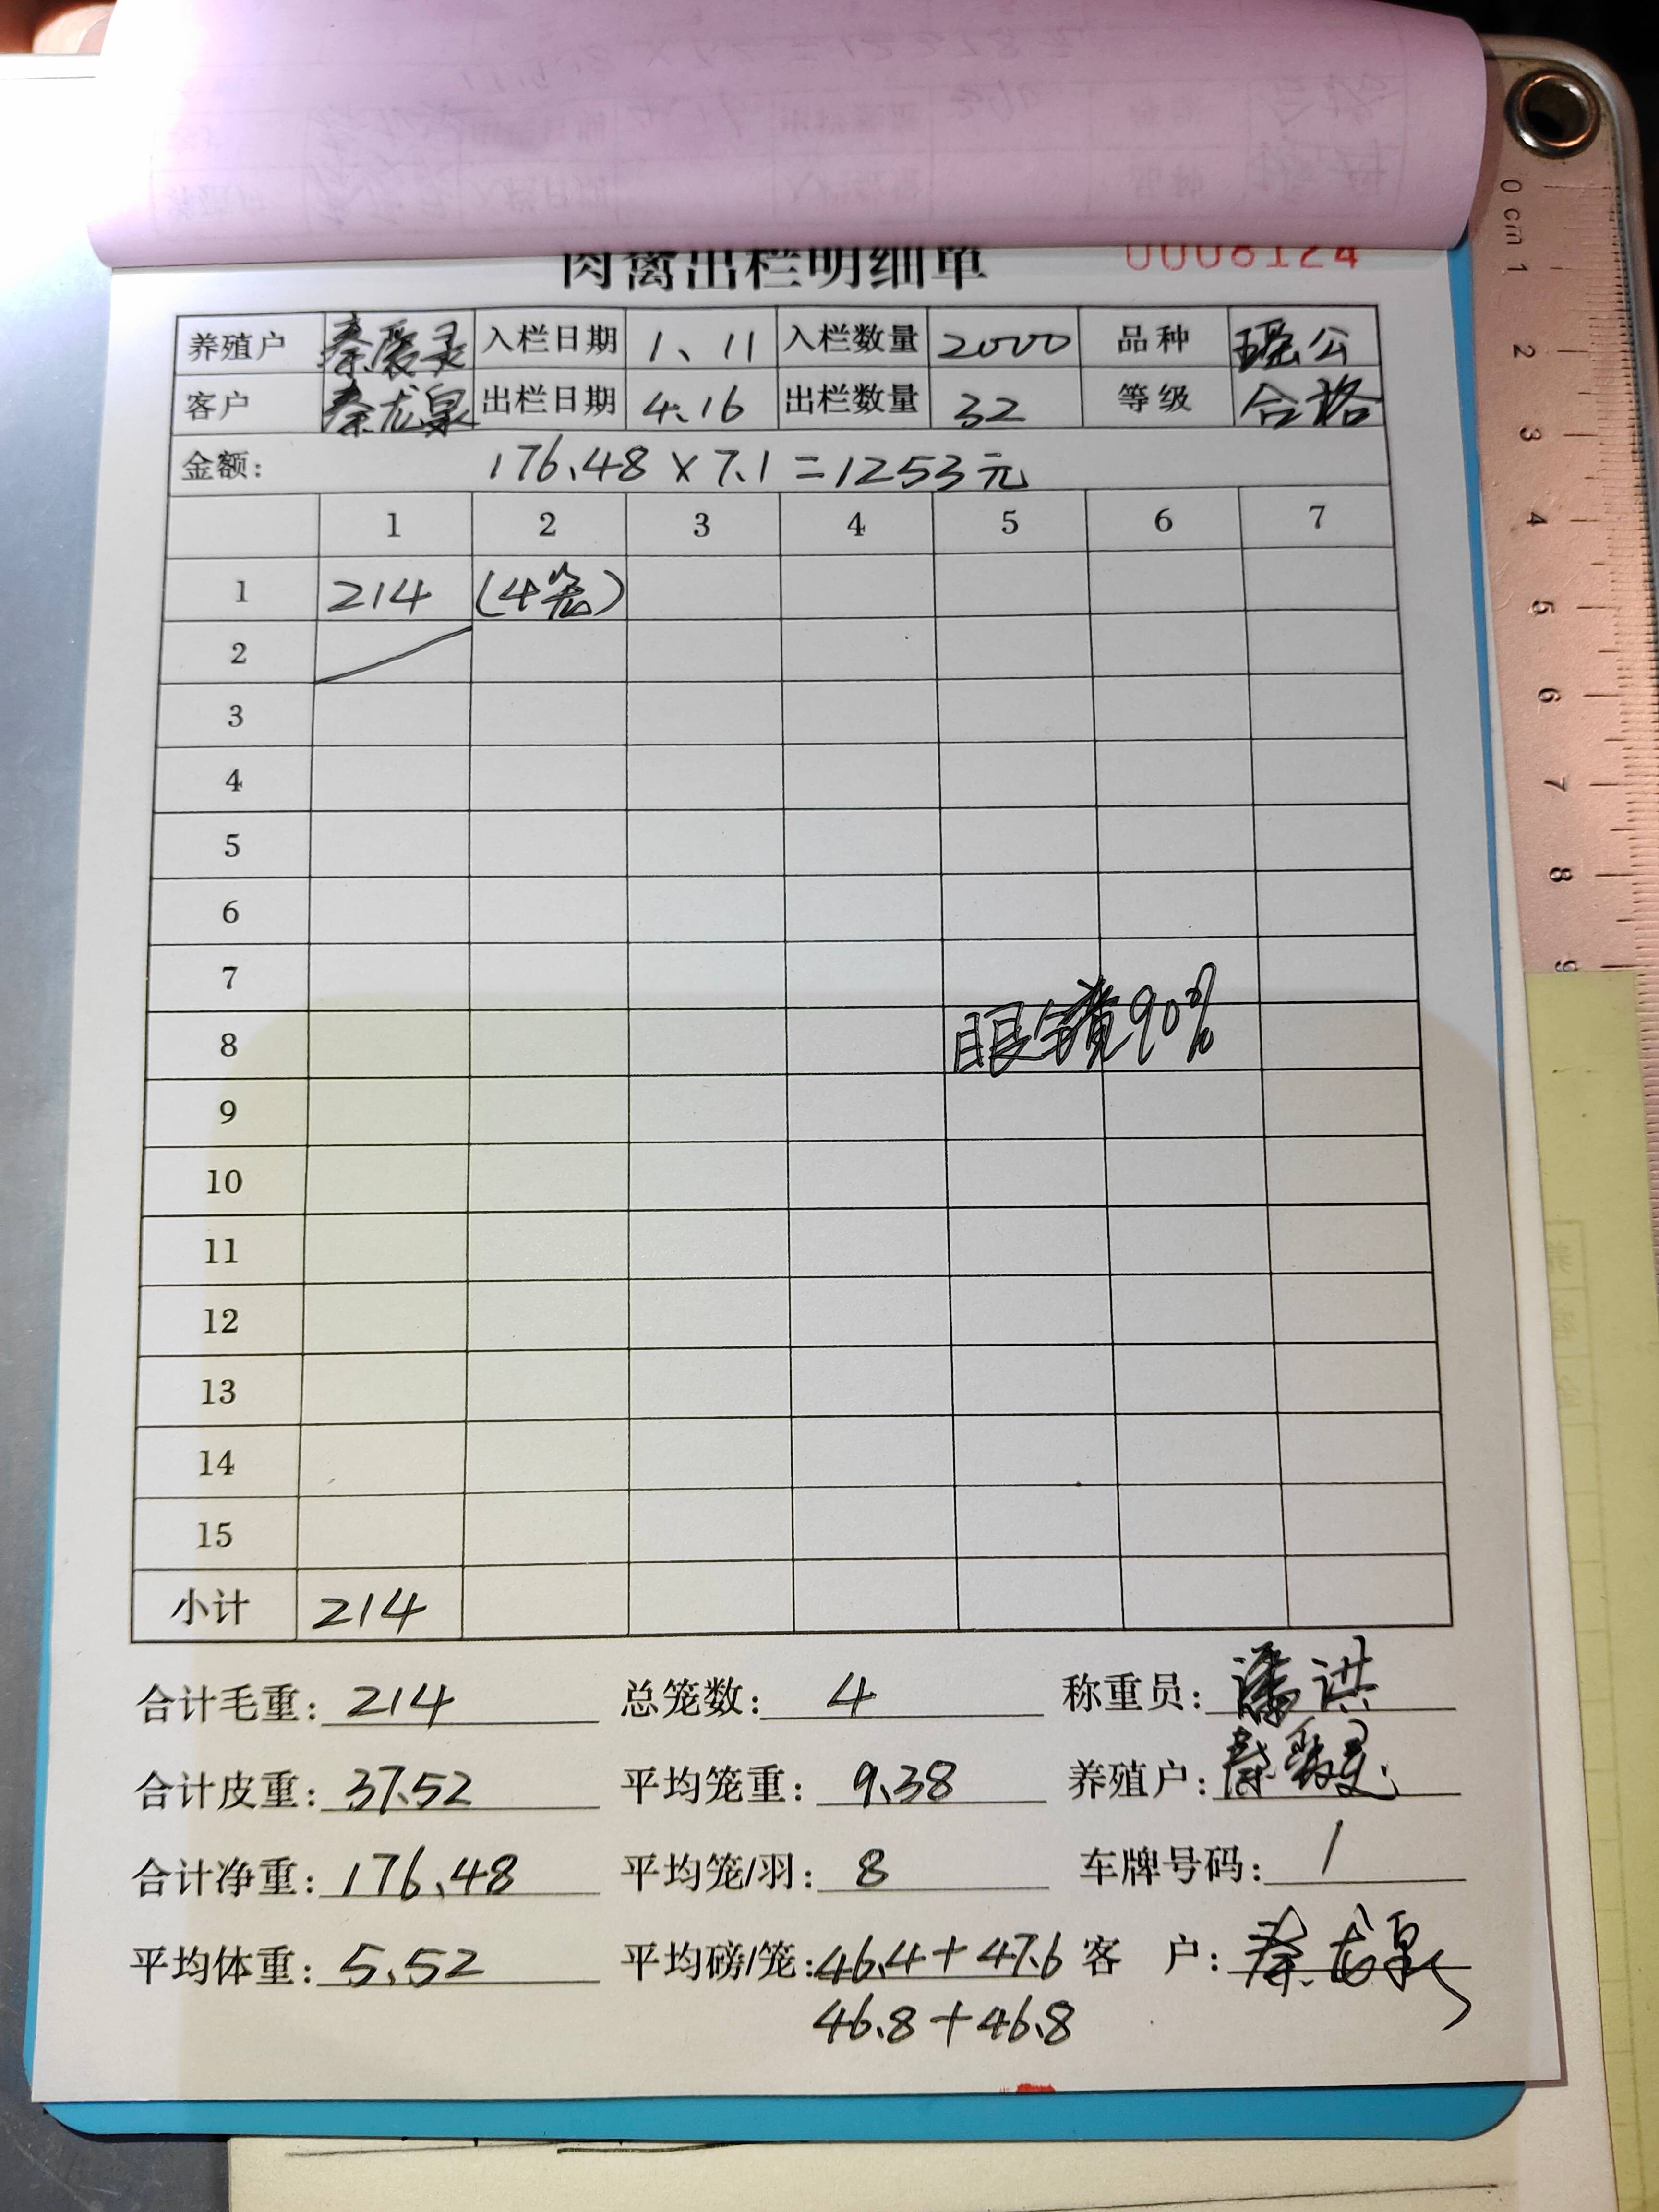 肉禽出栏明细单 0008124
养殖户 入栏日期 1、11 入栏数量 2000 品种 瑶公
客户 秦龙泉 出栏日期 4.16 出栏数量 32 等级 合格
金额: 176.48×7.1=1253元
1 2 3 4 5 6 7
1 214 (4笼)
2
3
4
5
6
7
8 眼 90%
9
10
11
12
13
14
15
小计 214
合计毛重: 214 总笼数: 4 称重员: 潘洪
合计皮重: 37.52 平均笼重: 9.38 养殖户:
合计净重: 176.48 平均笼/羽: 8 车牌号码: /
平均体重: 5.52 平均磅/笼: 46.4+47.6 客 户: 秦龙泉
46.8+46.8
0 cm 1 2 3 4 5 6 7 8 9